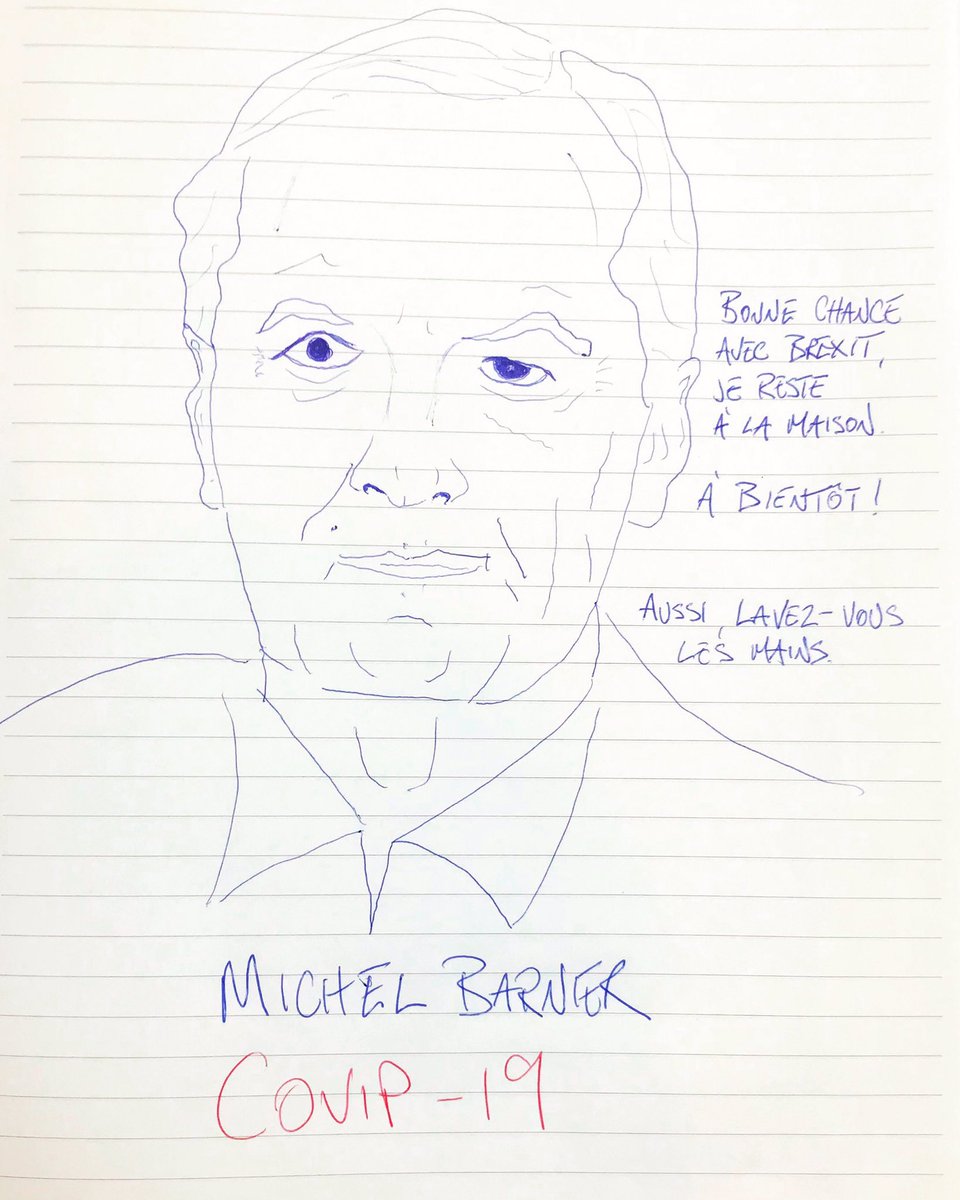 BONNE CHANCE
AVEC BREXIT,
JE RESTE
À LA MAISON.
À BIENTÔT !
AUSSI, LAVEZ-VOUS
LES MAINS.
MICHEL BARNIER
COVIP-19